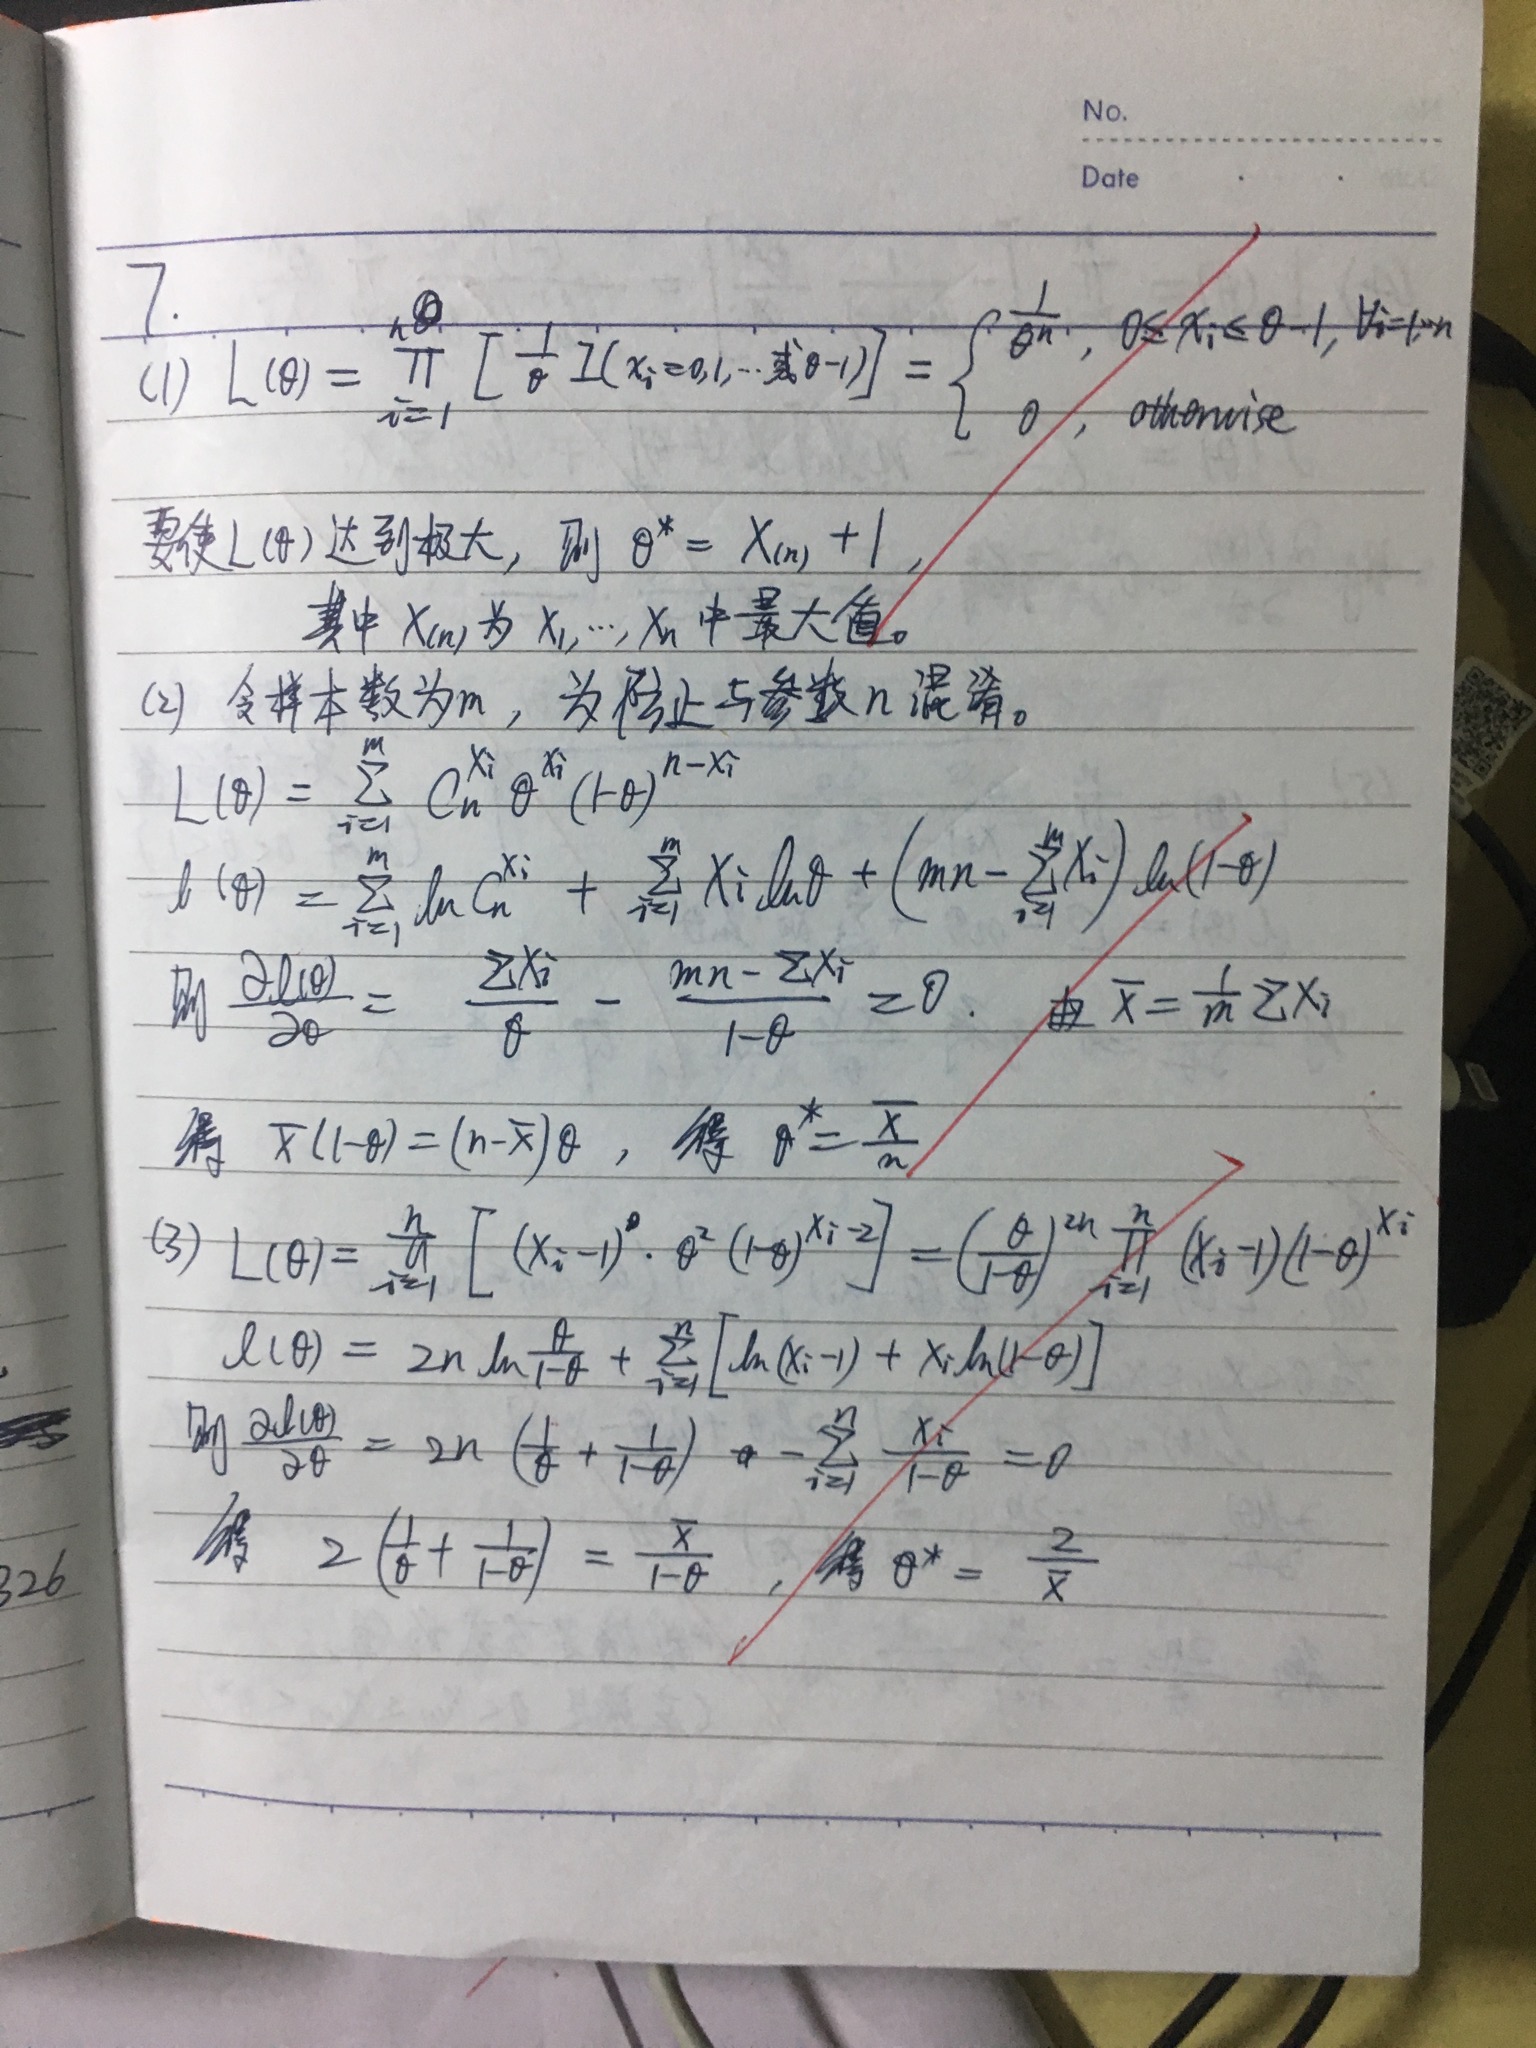 No.
Date
7.
(1) L(θ) = ∏_{i=1}^{n} [ 1/θ I(xᵢ=0,1,…或θ-1) ] = { 1/θⁿ, 0≤xᵢ≤θ-1, ∀i=1,…n
0, otherwise
要使L(θ)达到极大, 则 θ* = X₍ₙ₎ + 1,
其中 X₍ₙ₎ 为 X₁,…,Xₙ 中最大值。
(2) 令样本数为m, 为防止与参数n混淆。
L(θ) = ∑_{i=1}^{m} C_n^{Xᵢ} θ^{xᵢ} (1-θ)^{n-xᵢ}
l(θ) = ∑_{i=1}^{m} ln C_n^{Xᵢ} + ∑_{i=1}^{m} Xᵢ lnθ + (mn - ∑_{i=1}^{m} Xᵢ) ln(1-θ)
则 ∂l(θ)/∂θ = ∑Xᵢ/θ - (mn-∑Xᵢ)/(1-θ) = 0. 由 X̄ = 1/m ∑Xᵢ
得 X̄(1-θ) = (n-X̄)θ, 得 θ* = X̄/n
(3) L(θ) = ∏_{i=1}^{n} [ (Xᵢ-1)·θ²(1-θ)^{Xᵢ-2} ] = (θ/(1-θ))^{2n} ∏_{i=1}^{n} (Xᵢ-1)(1-θ)^{Xᵢ}
l(θ) = 2n ln θ/(1-θ) + ∑_{i=1}^{n} [ ln(Xᵢ-1) + Xᵢ ln(1-θ) ]
则 ∂l(θ)/∂θ = 2n (1/θ + 1/(1-θ)) - ∑_{i=1}^{n} Xᵢ/(1-θ) = 0
得 2(1/θ + 1/(1-θ)) = X̄/(1-θ), 得 θ* = 2/X̄
326